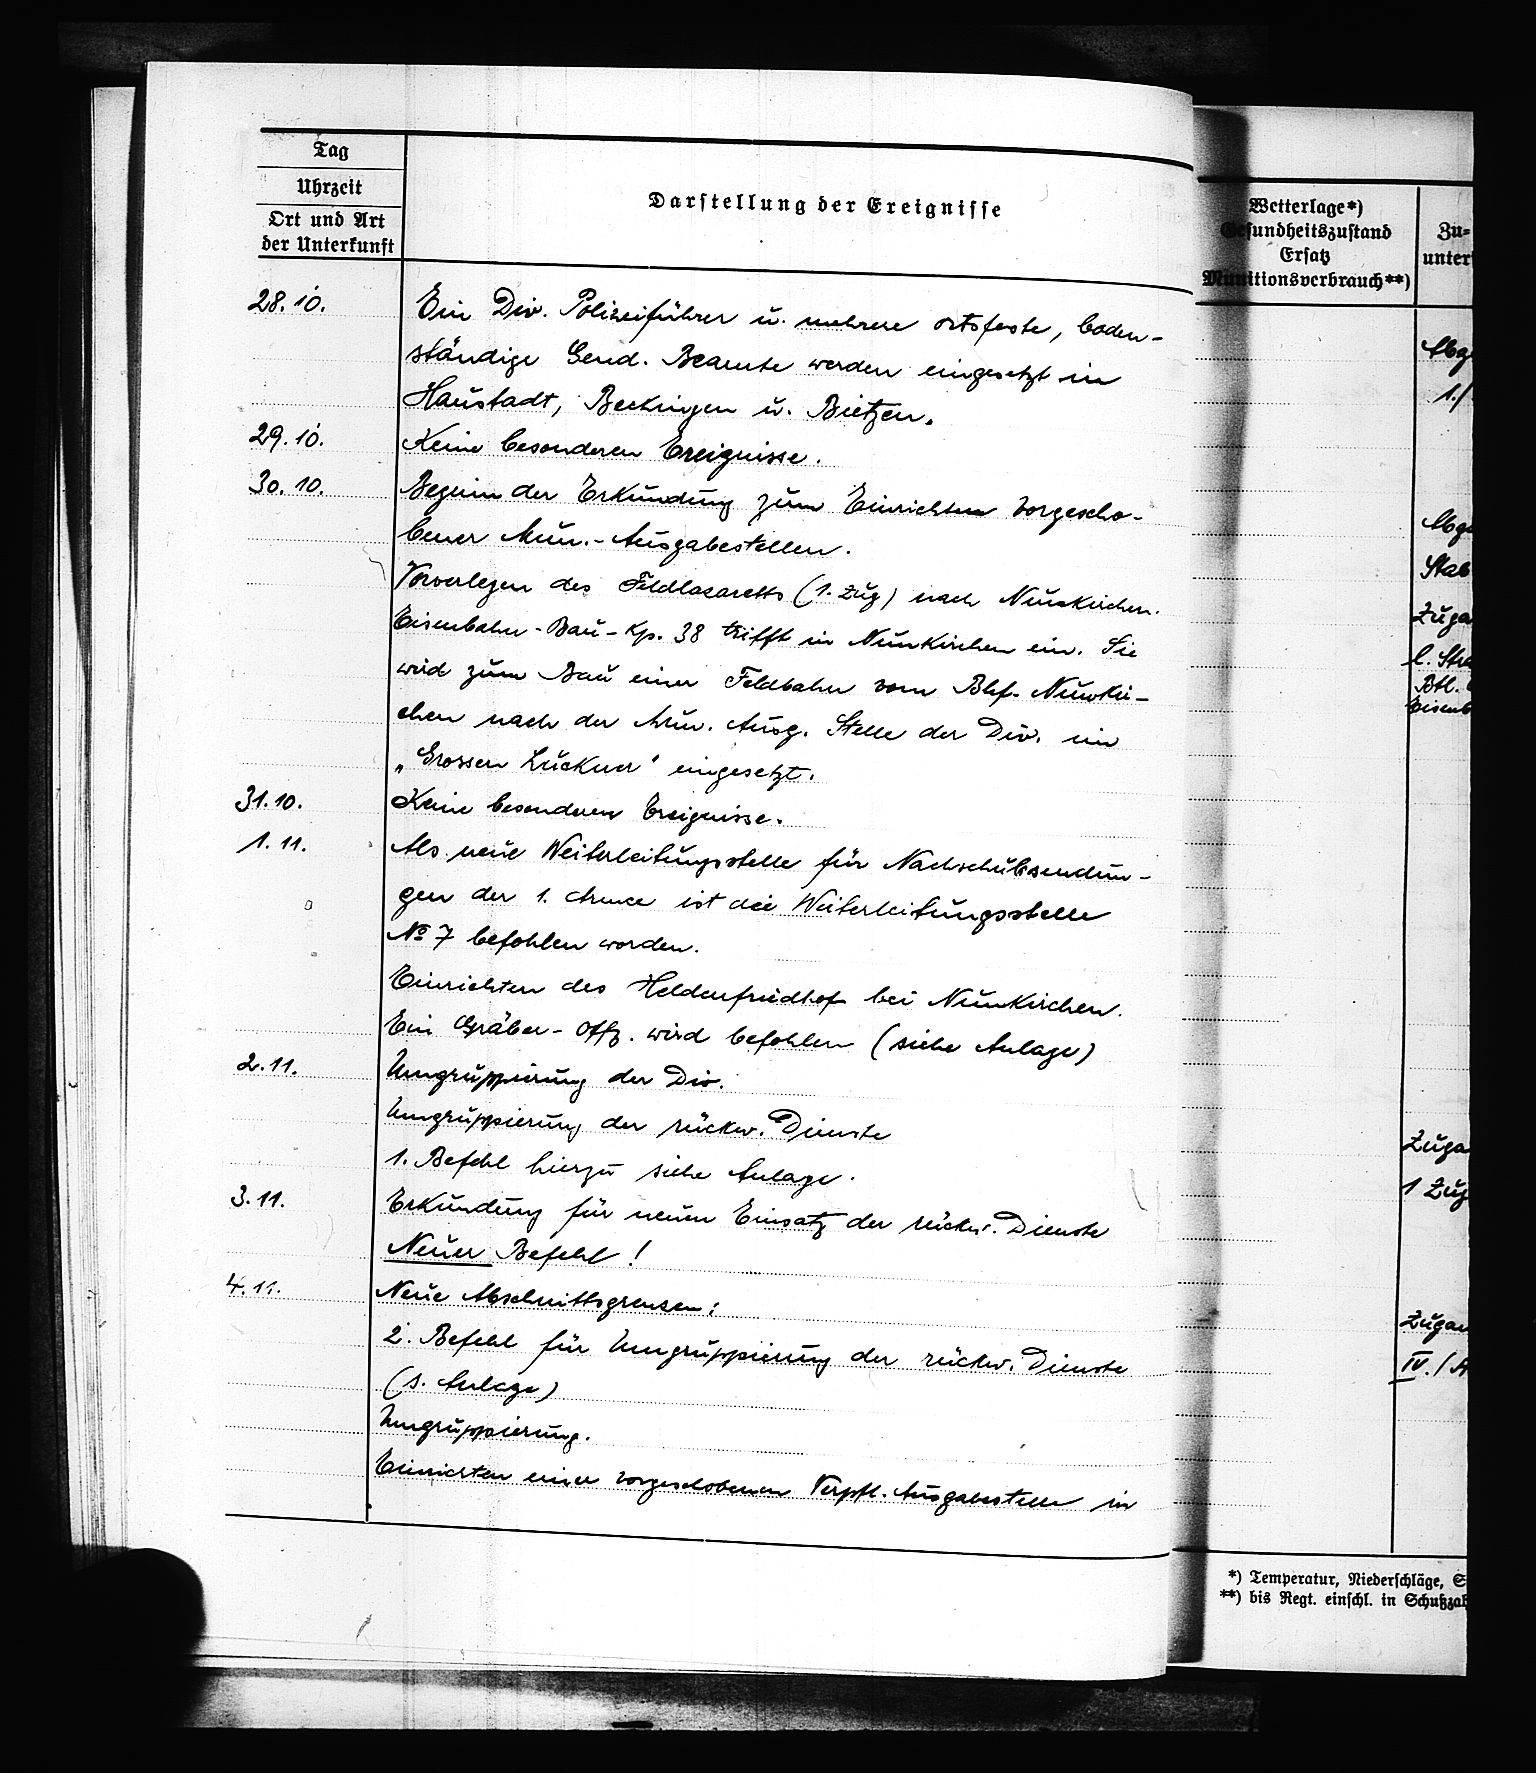 Tag
Uhrzeit
Ort und Art
der Unterkunft
Darstellung der Ereignisse
28.10. Ein Div. Polizeiführer u. mehrere ortsfeste, boden-
ständige Gend. Beamte werden eingesetzt in
Haustadt, Beckingen u. Bietzen.
29.10. Keine besonderen Ereignisse.
30.10. Beginn der Erkundung zum Einrichten vorgescho-
bener Mun.-Ausgabestellen.
Vorverlegen des Feldlazaretts (1. Zug) nach Neunkirchen.
Eisenbahn-Bau-Kp. 38 trifft in Neunkirchen ein. Sie
wird zum Bau einer Feldbahn vom Bhf. Neunkir-
chen nach der Mun. Ausg. Stelle der Div. im
„Grossen Lückner" eingesetzt.
31.10. Keine besonderen Ereignisse.
1.11. Als neue Weiterleitungsstelle für Nachschubsendun-
gen der 1. Armee ist die Weiterleitungsstelle
No 7 befohlen worden.
Einrichten des Heldenfriedhof bei Neunkirchen.
Ein Gräber-Offz. wird befohlen (siehe Anlage)
2.11. Umgruppierung der Div.
Umgruppierung der rückw. Dienste
1. Befehl hierzu siehe Anlage.
3.11. Erkundung für neuen Einsatz der rückw. Dienste
Neuer Befehl!
4.11. Neue Abschnittsgrenzen:
2. Befehl für Umgruppierung der rückw. Dienste
(s. Anlage)
Umgruppierung.
Einrichten einer vorgeschobenen Verpfl. Ausgabestelle in
Wetterlage*)
Gesundheitszustand
Ersatz
Munitionsverbrauch**)
Zu-
unter
1./
Stab
Btl.
1 Zug
IV./A
*) Temperatur, Niederschläge, S
**) bis Regt. einschl. in Schußzah